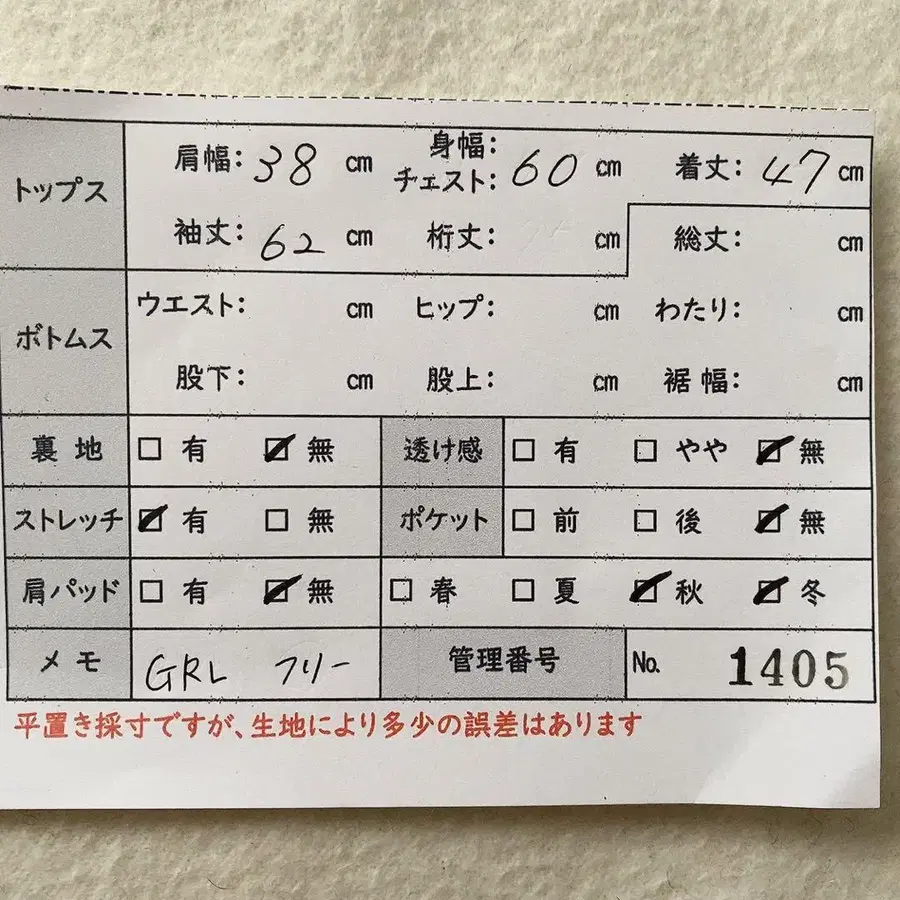 トップス 肩幅: 38 cm 身幅: チェスト: 60 cm 着丈: 47 cm
袖丈: 62 cm 裄丈: cm 総丈: cm
ボトムス ウエスト: cm ヒップ: cm わたり: cm
股下: cm 股上: cm 裾幅: cm
裏地 □ 有 ☑ 無 透け感 □ 有 □ やや ☑ 無
ストレッチ ☑ 有 □ 無 ポケット □ 前 □ 後 ☑ 無
肩パッド □ 有 ☑ 無 □ 春 □ 夏 ☑ 秋 ☑ 冬
メモ GRL フリー 管理番号 No. 1405
平置き採寸ですが、生地により多少の誤差はあります